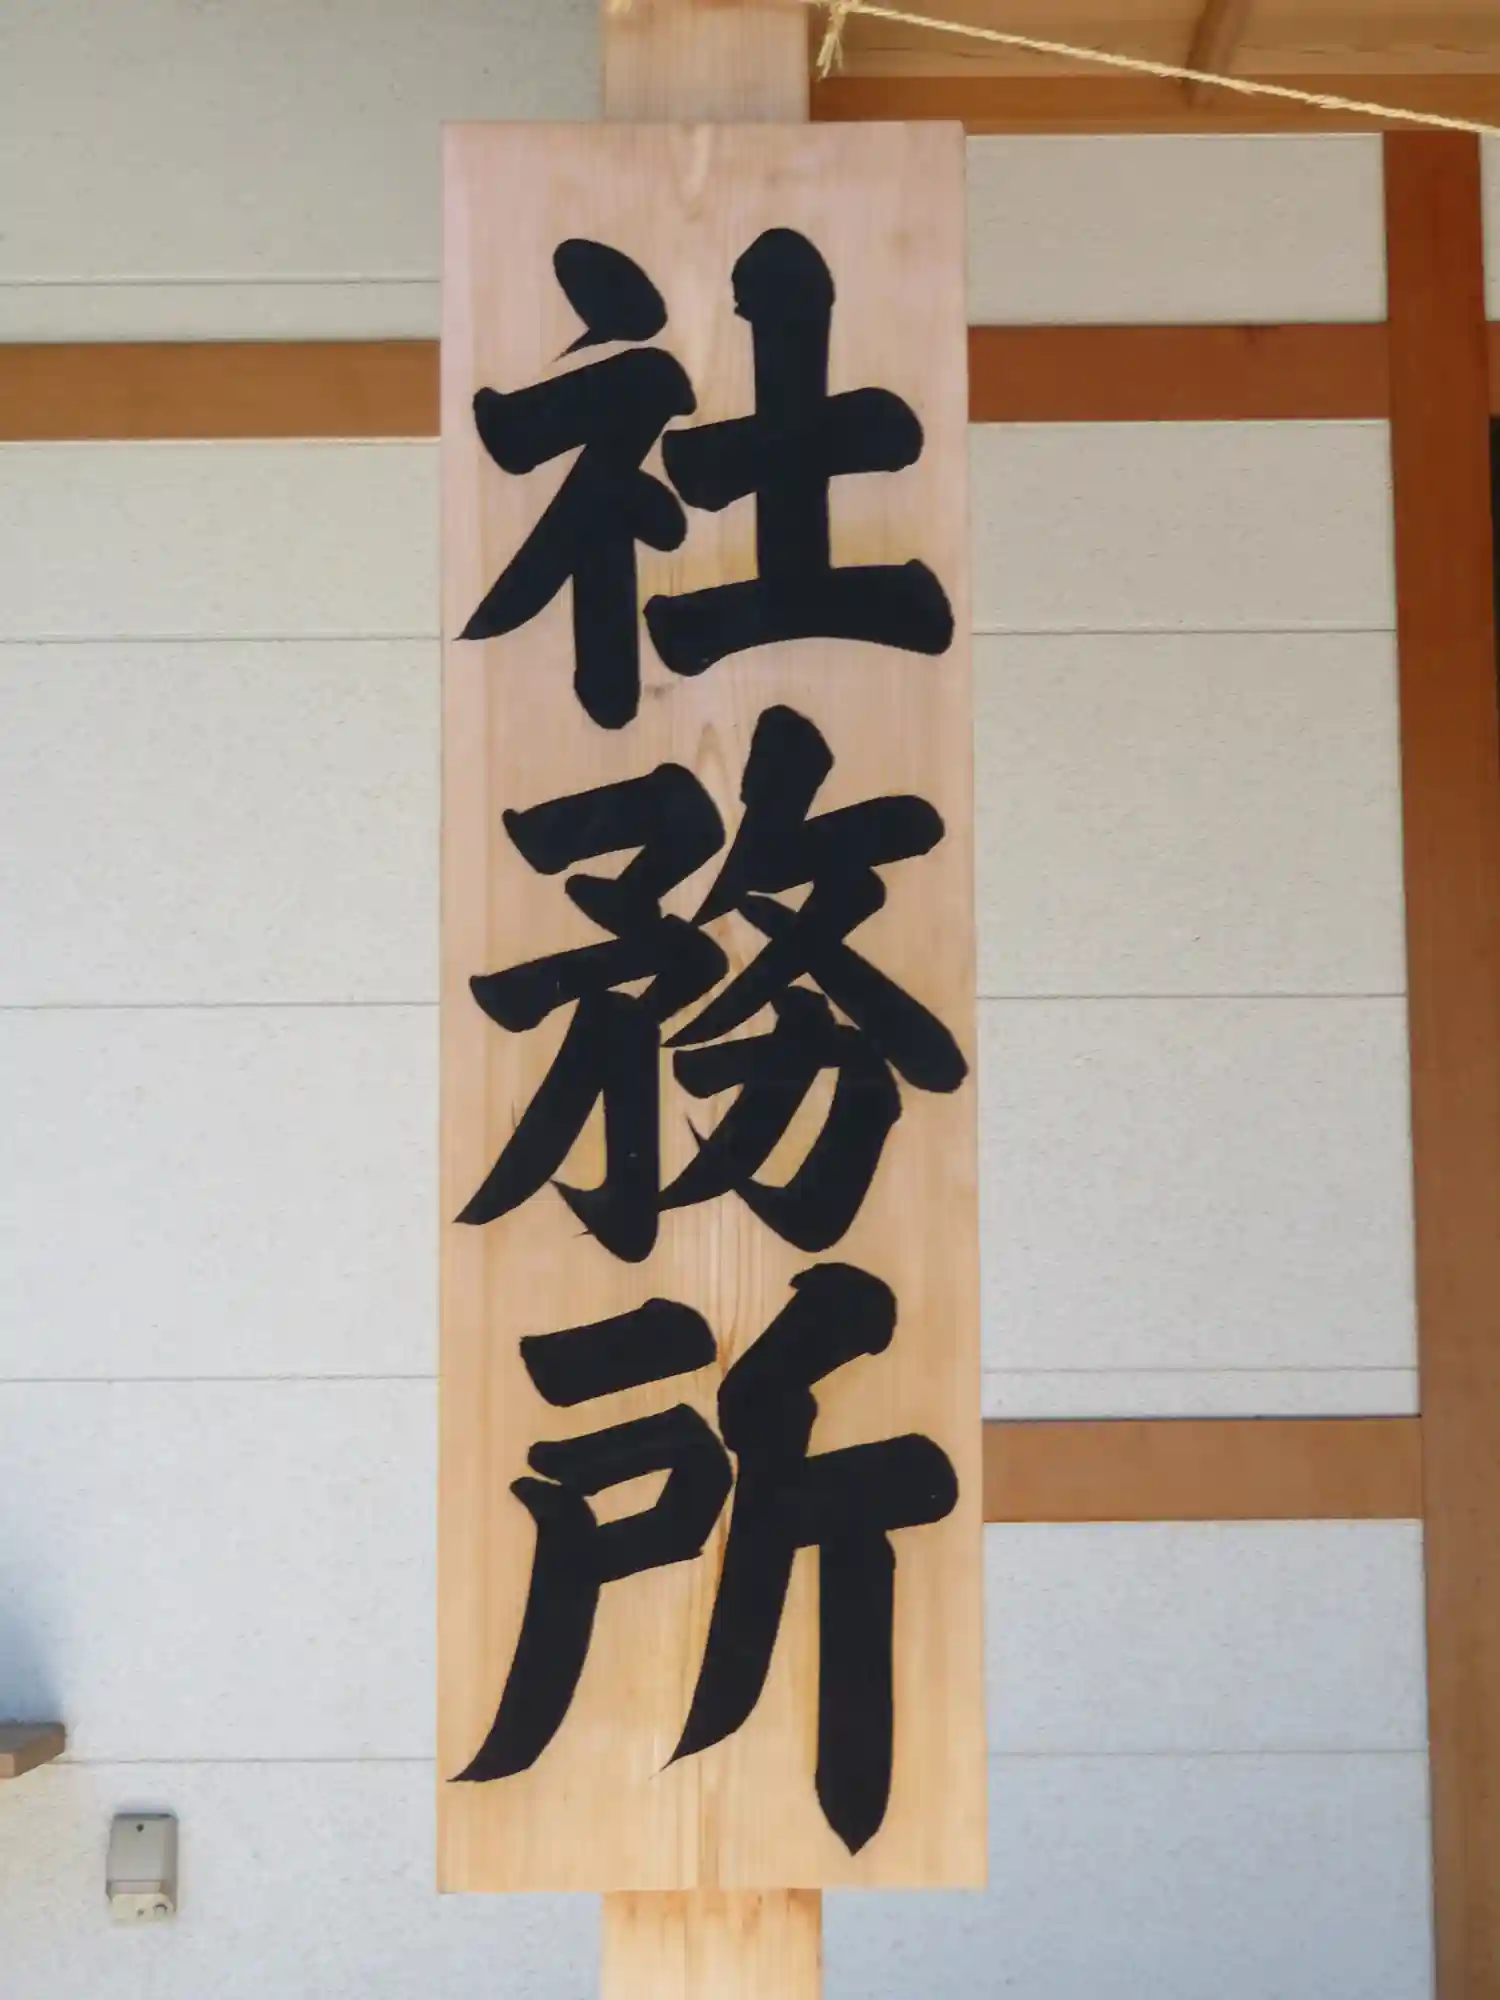 社務所